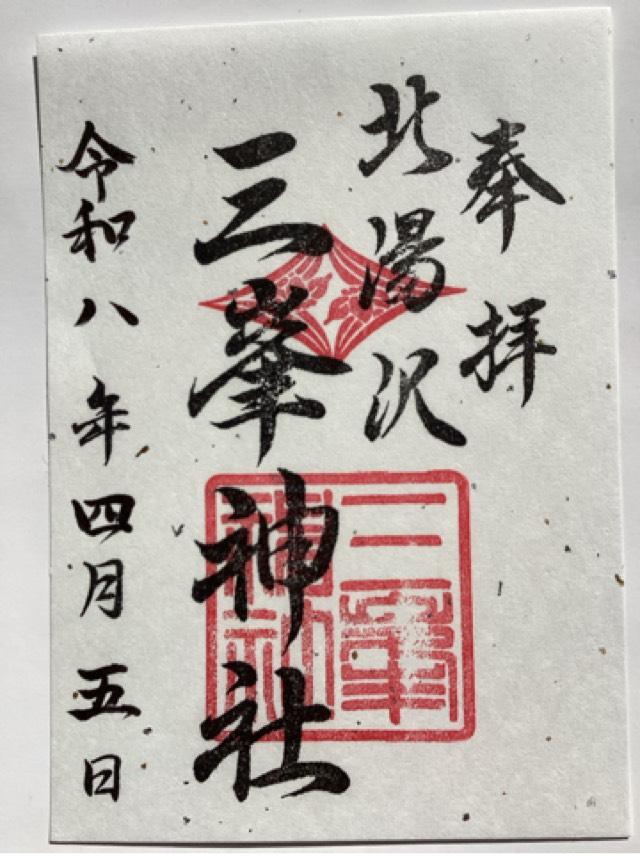 奉拝
北湯沢
三峯神社
三峯
神社
令和八年四月五日